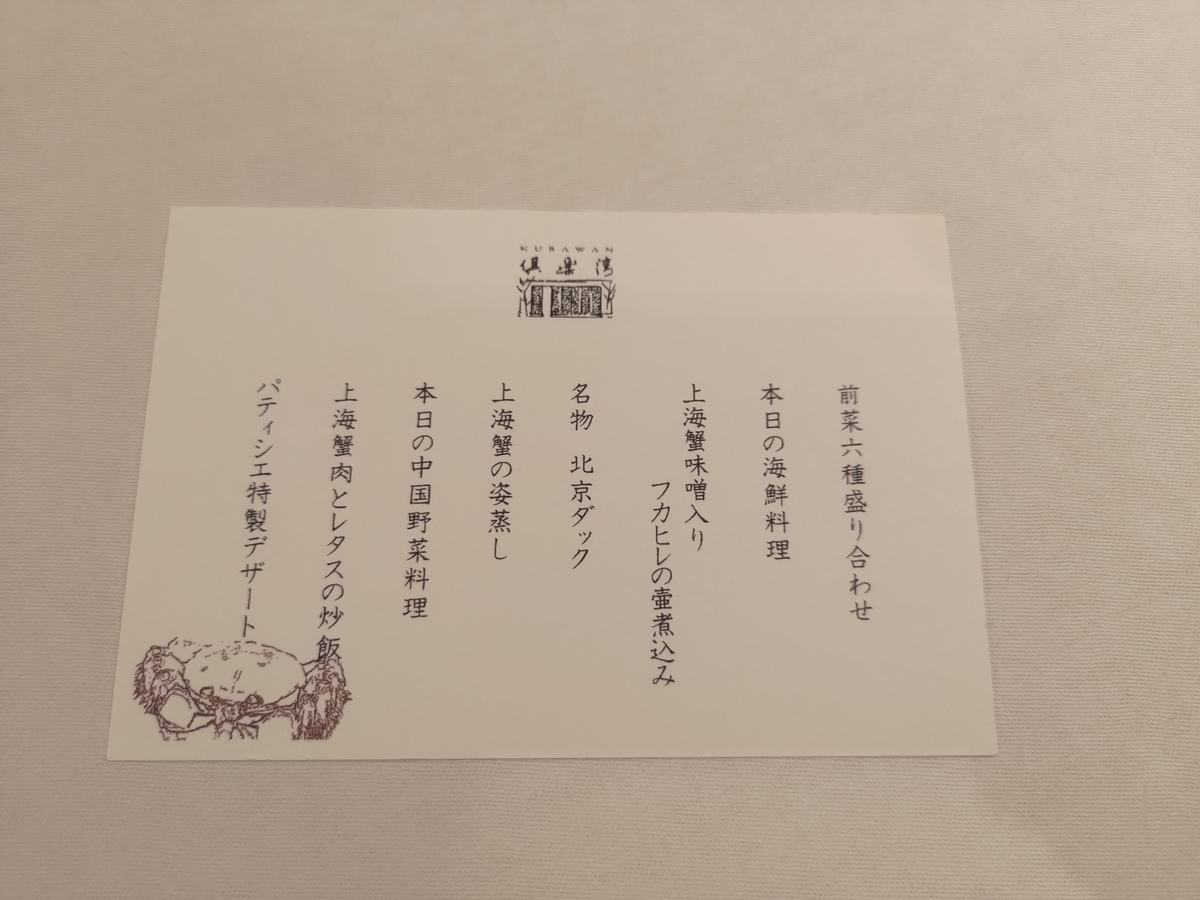 KURAWAN
倶楽湾
前菜六種盛り合わせ
本日の海鮮料理
上海蟹味噌入り
フカヒレの壷煮込み
名物　北京ダック
上海蟹の姿蒸し
本日の中国野菜料理
上海蟹肉とレタスの炒飯
パティシエ特製デザート